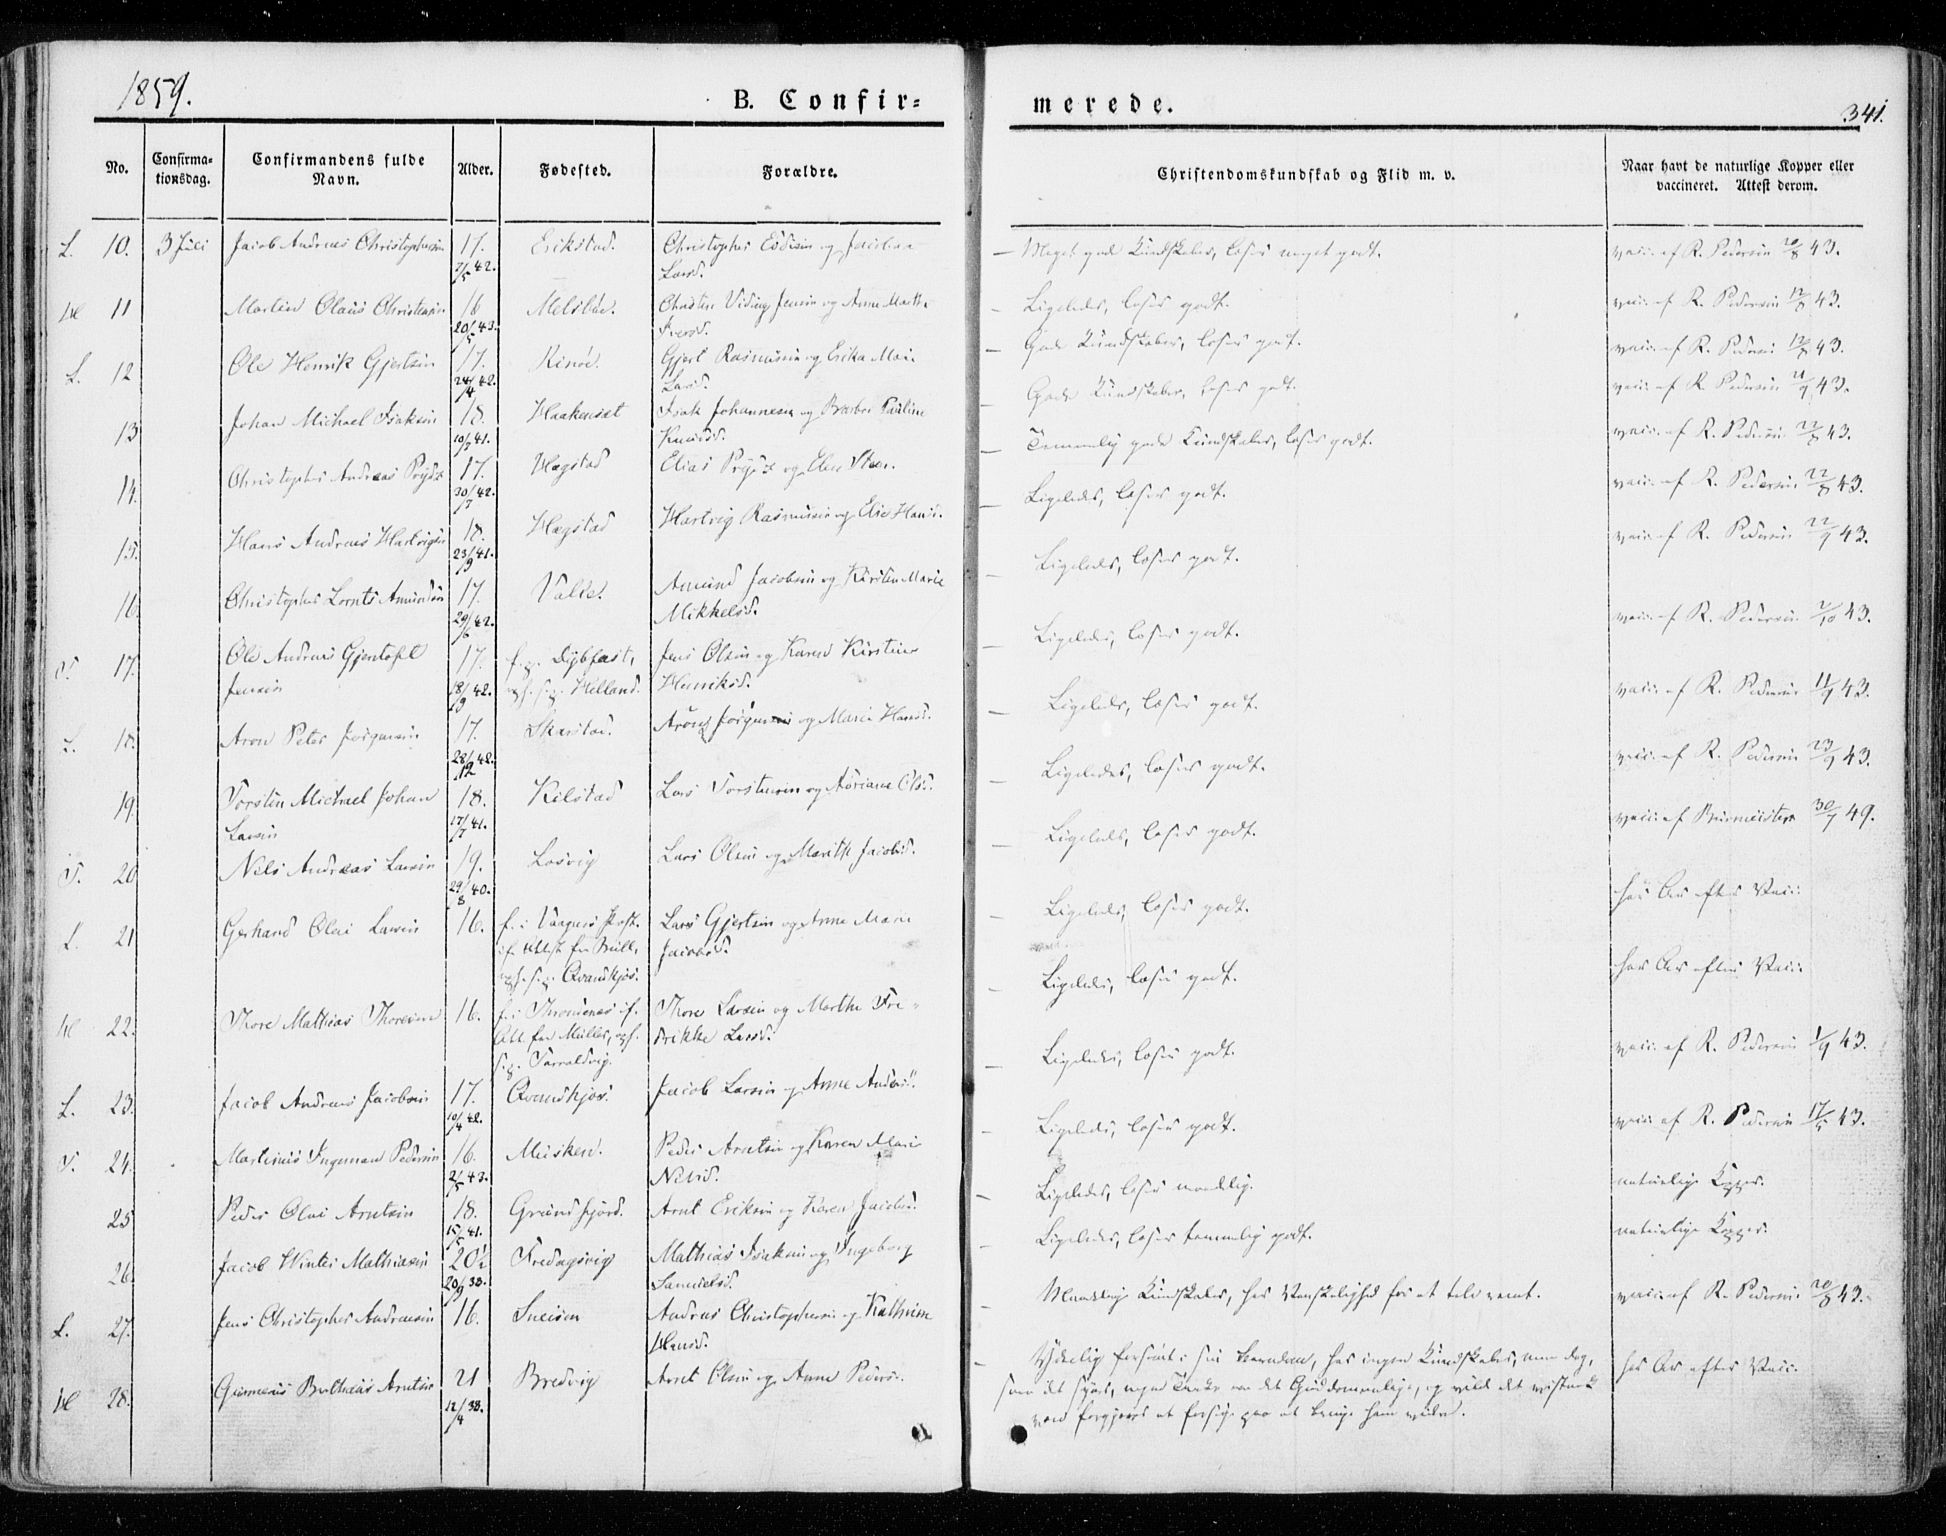 1859.
B. Confir=
merede.
341.
No.
Confirma-
tionsdag.
Confirmandens fulde
Navn.
Alder.
Fødested.
Forældre.
Christendomskundskab og Flid m. v.
Naar havt de naturlige Kopper eller
vaccineret. Attest derom.
L. 10. 3 Juli Jacob Andreas Christophersen 17. Erikstad. Christopher Esdisen og
2/5 42. Larsd.
— Meget gode Kundskaber, læser meget godt. vacc. af R. Pedersen 20/8 43.
11 Martin Olaus Christensen 16 Melsbøe. Christen Jensen og Anne Marthe
20/5 43. Iversd.
— Ligeledes, læser godt. vacc. af R. Pedersen 12/8 43.
L. 12 Ole Henrik Gjertsen 17. Rinøe. Gjert Rasmussen og Erika Marie
24/4 42. Larsd.
— Gode Kundskaber, læser godt. vacc. af R. Pedersen 12/8 43.
13 Johan Michael Isaksen 18. Haakenset Isak Johannesen og Barbro Pauline
10/7 41. Knudsd.
— Gode Kundskaber, læser godt. vacc. af R. Pedersen 21/9 43.
14. Christopher Andreas Prydz 17. Hægstad Elias Prydz og Elen
30/7 42.
— Temmelig gode Kundskaber, læser godt. vacc. af R. Pedersen 22/8 43.
15. Hans Andreas Hartvigsen 18. Hægstad Hartvig Rasmussen og Elie Hansd.
23/9 41.
— Ligeledes, læser godt. vacc. af R. Pedersen 22/8 43.
16 Christopher Lornts Amundsen 17. Valde. Amund Jacobsen og Kirsten Marie
29/6 42. Mikkelsd.
— Ligeledes, læser godt. vacc. af R. Pedersen 22/9 43.
17. Ole Andreas Gjertofel 17. f. p. Dybfæst, Jens Olsen og Karen Kirstine
Jensen 18/9 42. opf. s. p. Helland. Henriksd.
— Ligeledes, læser godt. vacc. af R. Pedersen 2/10 43.
L. 18. Aron Peter Jørgensen 17. Skarstad. Arons Jørgensen og Marie Hansd.
28/12 42.
— Ligeledes, læser godt. vacc. af R. Pedersen 11/9 43.
19. Torsten Michael Johan 18. Kilstad Lars Torstensen og Adriane Olsd.
Larsen 17/7 41.
— Ligeledes, læser godt. vacc. af R. Pedersen 23/9 43.
T. 20 Nils Andreas Larsen 19. Losvig Lars Olsen og Marith Jacobsd.
29/8 40.
— Ligeledes, læser godt. vacc. af Burmeister 30/7 49.
L. 21 Gerhard Olai Larsen 16. f. i Vaagens Præst. Lars Gjertsen og Anne Marie
opf. s. p. Qvandkjos. Jacobsd.
— Ligeledes, læser godt. har Ar efter Vacc.
22. Thore Mathias Thoresen 16. f. i Throndenes if. Thore Larsen og Marthe Fre-
Att. fra Müller, opf. drikke Larsd.
s. p. Tarraldsvig.
— Ligeledes, læser godt. har Ar efter Vacc.
L. 23. Jacob Andreas Jacobsen 17. Qvandkjos. Jacob Larsen og Anne Andersd.
10/4 42.
— Ligeledes, læser godt. vacc. af R. Pedersen 1/9 43.
T. 24. Martinus Ingeman Pedersen 16. Musken. Peder Arntsen og Karen Marie
2/5 43. Nilsd.
— Ligeledes, læser godt. vacc. af R. Pedersen 43.
25 Peder Olai Arntsen 18. Grundfjord. Arnt Eriksen og Karen Jacobsd.
15/5 41.
— Ligeledes, læser maadelig. naturlige Kopper.
26. Jacob Winter Mathiasen 20½ Fredagsvig Mathias Isaksen og Ingeborg
20/9 38. Samuelsd.
— Ligeledes, læser temmelig godt. naturlige Kopper.
L. 27. Jens Christopher Andreasen 16. Sneisen Andreas Christophersen og Kathrine
Hansd.
— Maadelige Kundskaber, har Vanskelighed for at tale reent. vacc. af R. Pedersen 20/8 43.
28. Gunnerus Berthæus Arntsen 21 Bredvig Arnt Olsen og Anne Pedersd.
12/4 38.
— Yderlig forsømt i sin Barndom, har ingen Kundskaber, men dog, har Ar efter Vacc.
som det synes, nogen Tanke om det Guddommelige, og vilde det vistnok
være forgjæves at forsøge paa at bringe ham videre.